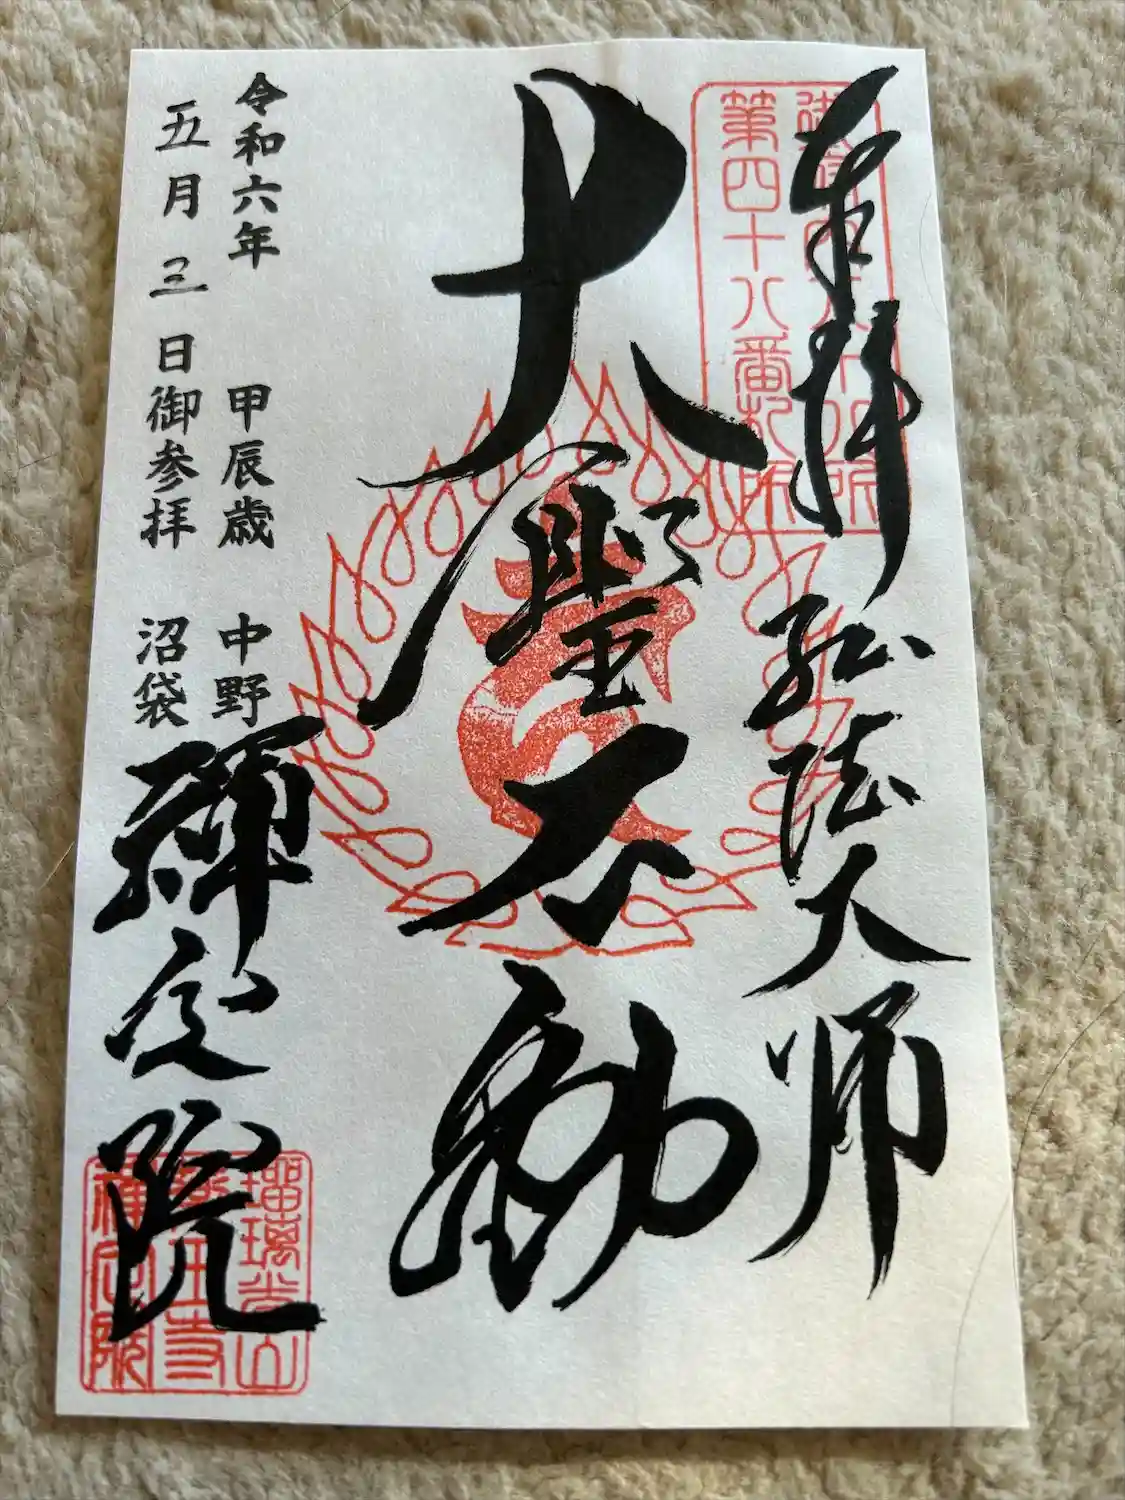 奉拝 弘法大師
第四十八番札所
大聖不動
令和六年 甲辰歳 中野
五月三日御参拝 沼袋
禪定院
瑠璃光山
薬王寺
禪定院